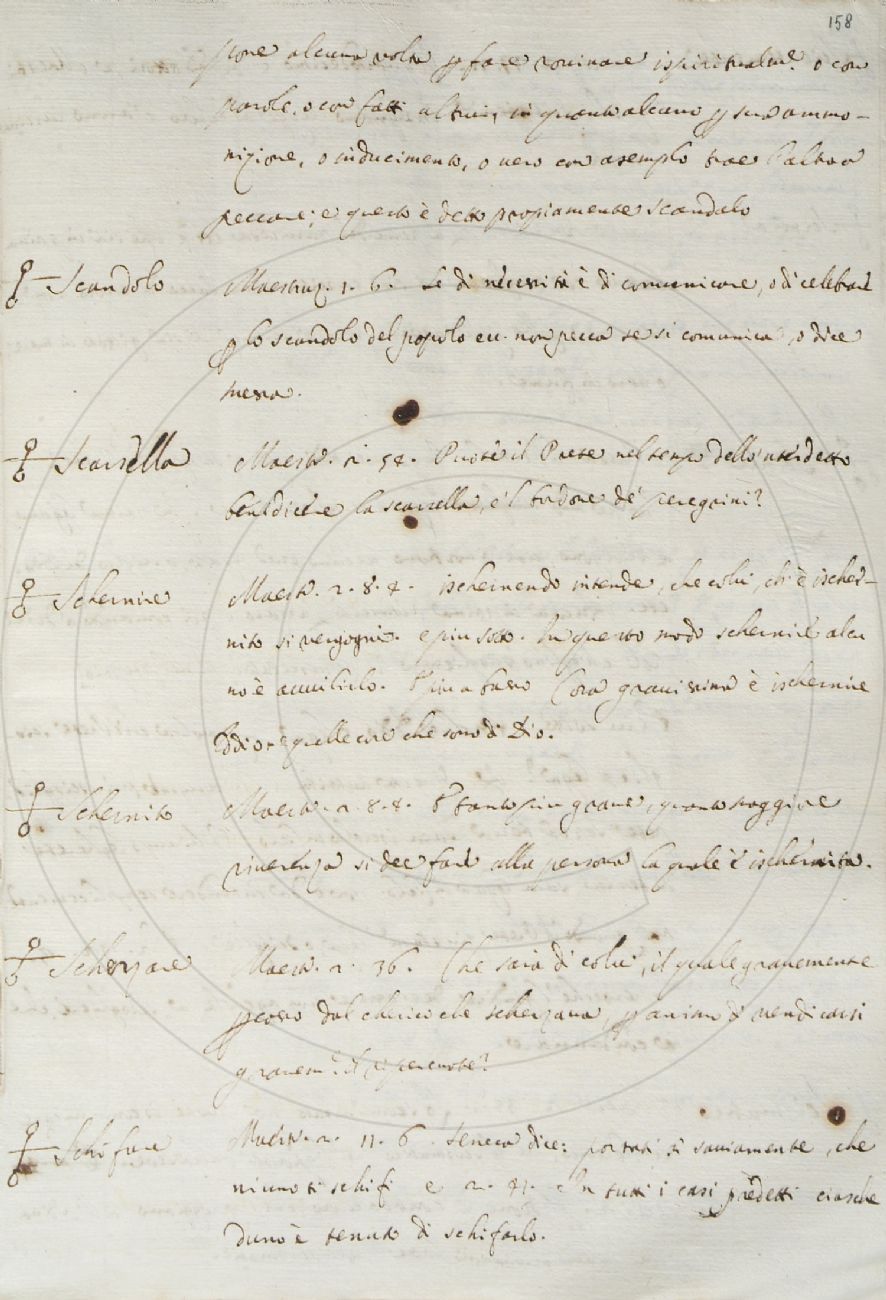 158
zione alcuna volta p fare rovinare ispiritualm.e o con
parole, o con fatti altrui, in quanto alcuno p sua ammo-
nizione, o inducimento, o vero con asemplo trae l'altro a
peccare; e questo è detto propiamente scandalo
Scandolo Maestruz. 1. 6. Se di necessità è di comunicare, o di celebrare
p lo scandolo del popolo ec. non pecca se si comunica, o dice
messa.
Scarsella Maestr. 2. 54. Puote il Prete nel tempo dello 'nterdetto
benedicere la scarsella, e 'l bordone de' peregrini?
Schernire Maestr. 2. 8. 4. ischernendo intende, che colui, ch'è ischer-
nito si vergogni. e più sotto. In questo modo schernire alcu
no è avvilirlo. E più a basso Cosa gravissima è ischernire
Iddio, e quelle cose che sono di Dio.
Schernito Maestr. 2. 8. 4. E tanto più grave, quanto maggiore
riverenza si dee fare alla persona la quale è ischernita.
Scherzare Maestr. 2. 36. Che sarà di colui, il quale gravemente
pcosso dal cherico che scherzava, p animo di vendicarsi
gravem.e il ripercuote?
Schifare Maestr. 2. 11. 6. Seneca dice: portati sì saviamente, che
niuno ti schifi e 2. 41. In tutti i casi predetti ciasche
duno è tenuto di schifarlo.